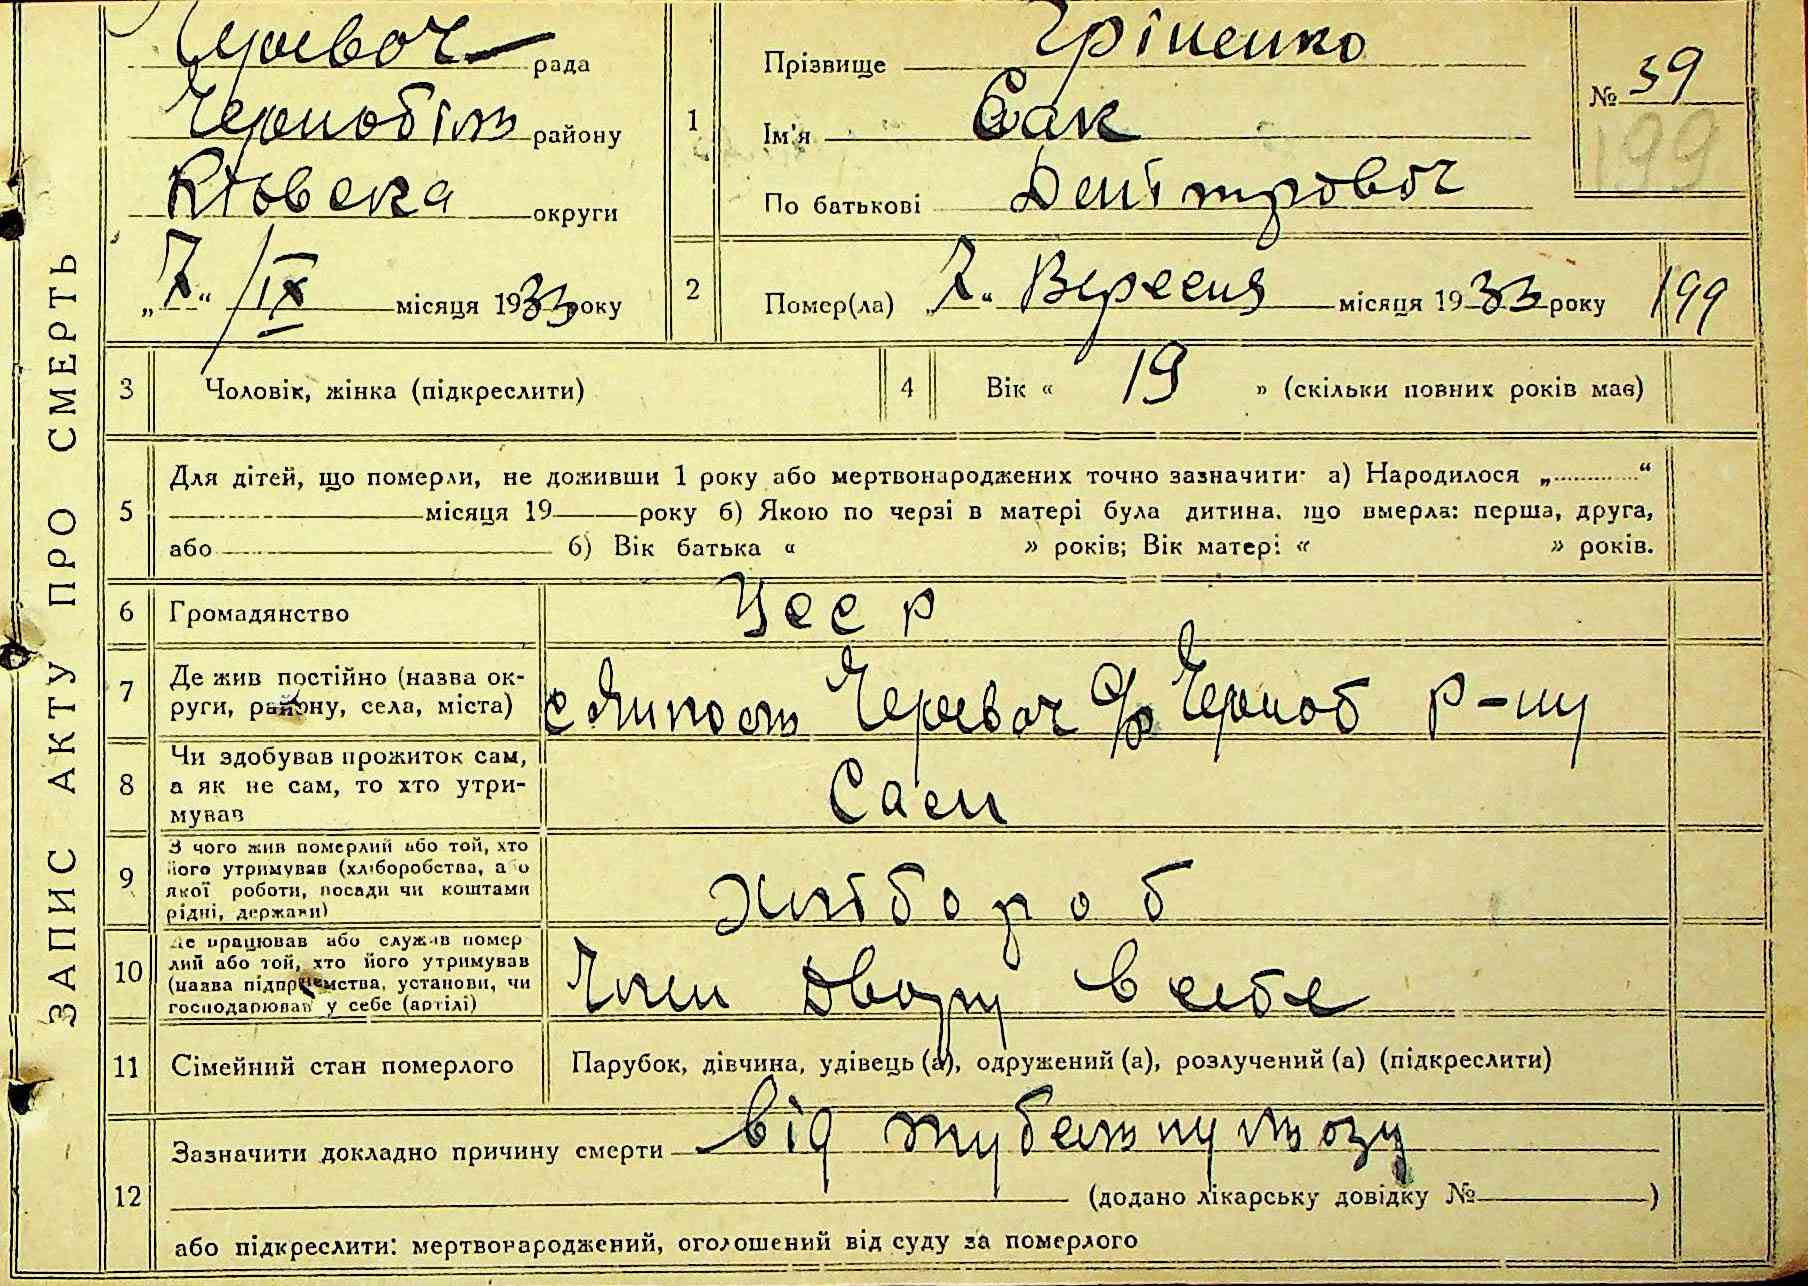 ЗАПИС АКТУ ПРО СМЕРТЬ
Черевач рада
Чорнобіль району
Київска округи
„7“ /IX місяця 1933 року
1
Прізвище Гріненко
Ім'я Сак
По батькові Дмітрович
№ 39
199
2
Помер(ла) „7“ Вересня місяця 1933 року
199
3 Чоловік, жінка (підкреслити)
4 Вік « 19 » (скільки повних років має)
5
Для дітей, що померли, не доживши 1 року або мертвонароджених точно зазначити: а) Народилося „ “
місяця 19 року б) Якою по черзі в матері була дитина, що вмерла: перша, друга,
або б) Вік батька « » років; Вік матері « » років.
6 Громадянство УССР
7
Де жив постійно (назва ок-
руги, району, села, міста)
Черевач с/р Черноб р-ну
8
Чи здобував прожиток сам,
а як не сам, то хто утри-
мував
Сам
9
З чого жив померлий або той, хто
його утримував (хліборобства, або
якої роботи, посади чи коштами
рідні, держави)
Хлібороб
10
Де працював або служив помер
лий або той, хто його утримував
(назва підприємства, установи, чи
господарював у себе (артілі)
Член двору в себе
11 Сімейний стан померлого
Парубок, дівчина, удівець (а), одружений (а), розлучений (а) (підкреслити)
12
Зазначити докладно причину смерти від
(додано лікарську довідку № )
або підкреслити: мертвонароджений, оголошений від суду за померлого